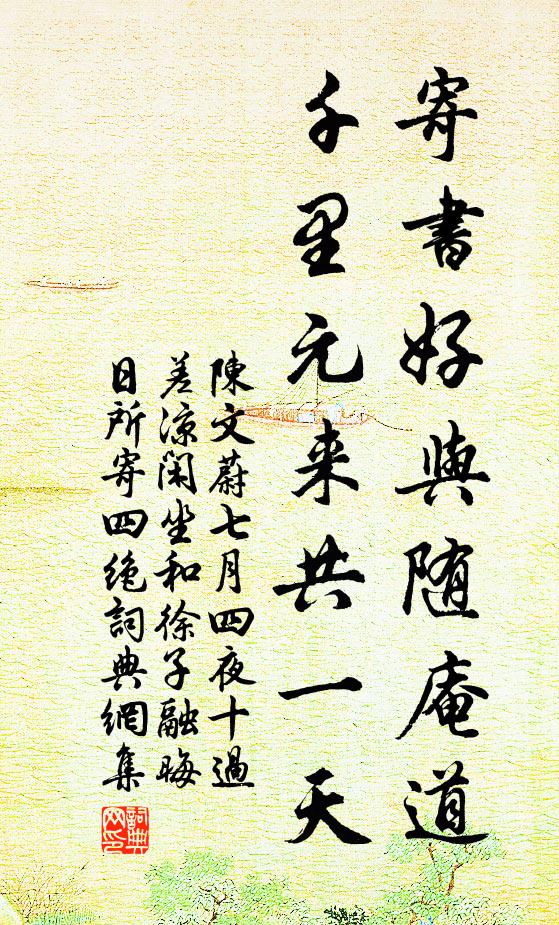 寄書好與随庵道
千里元来共一天
陳文蔚七月四夜十過
差涼閑坐和徐子融晦
日所寄四絶詞典網集
詞典网印